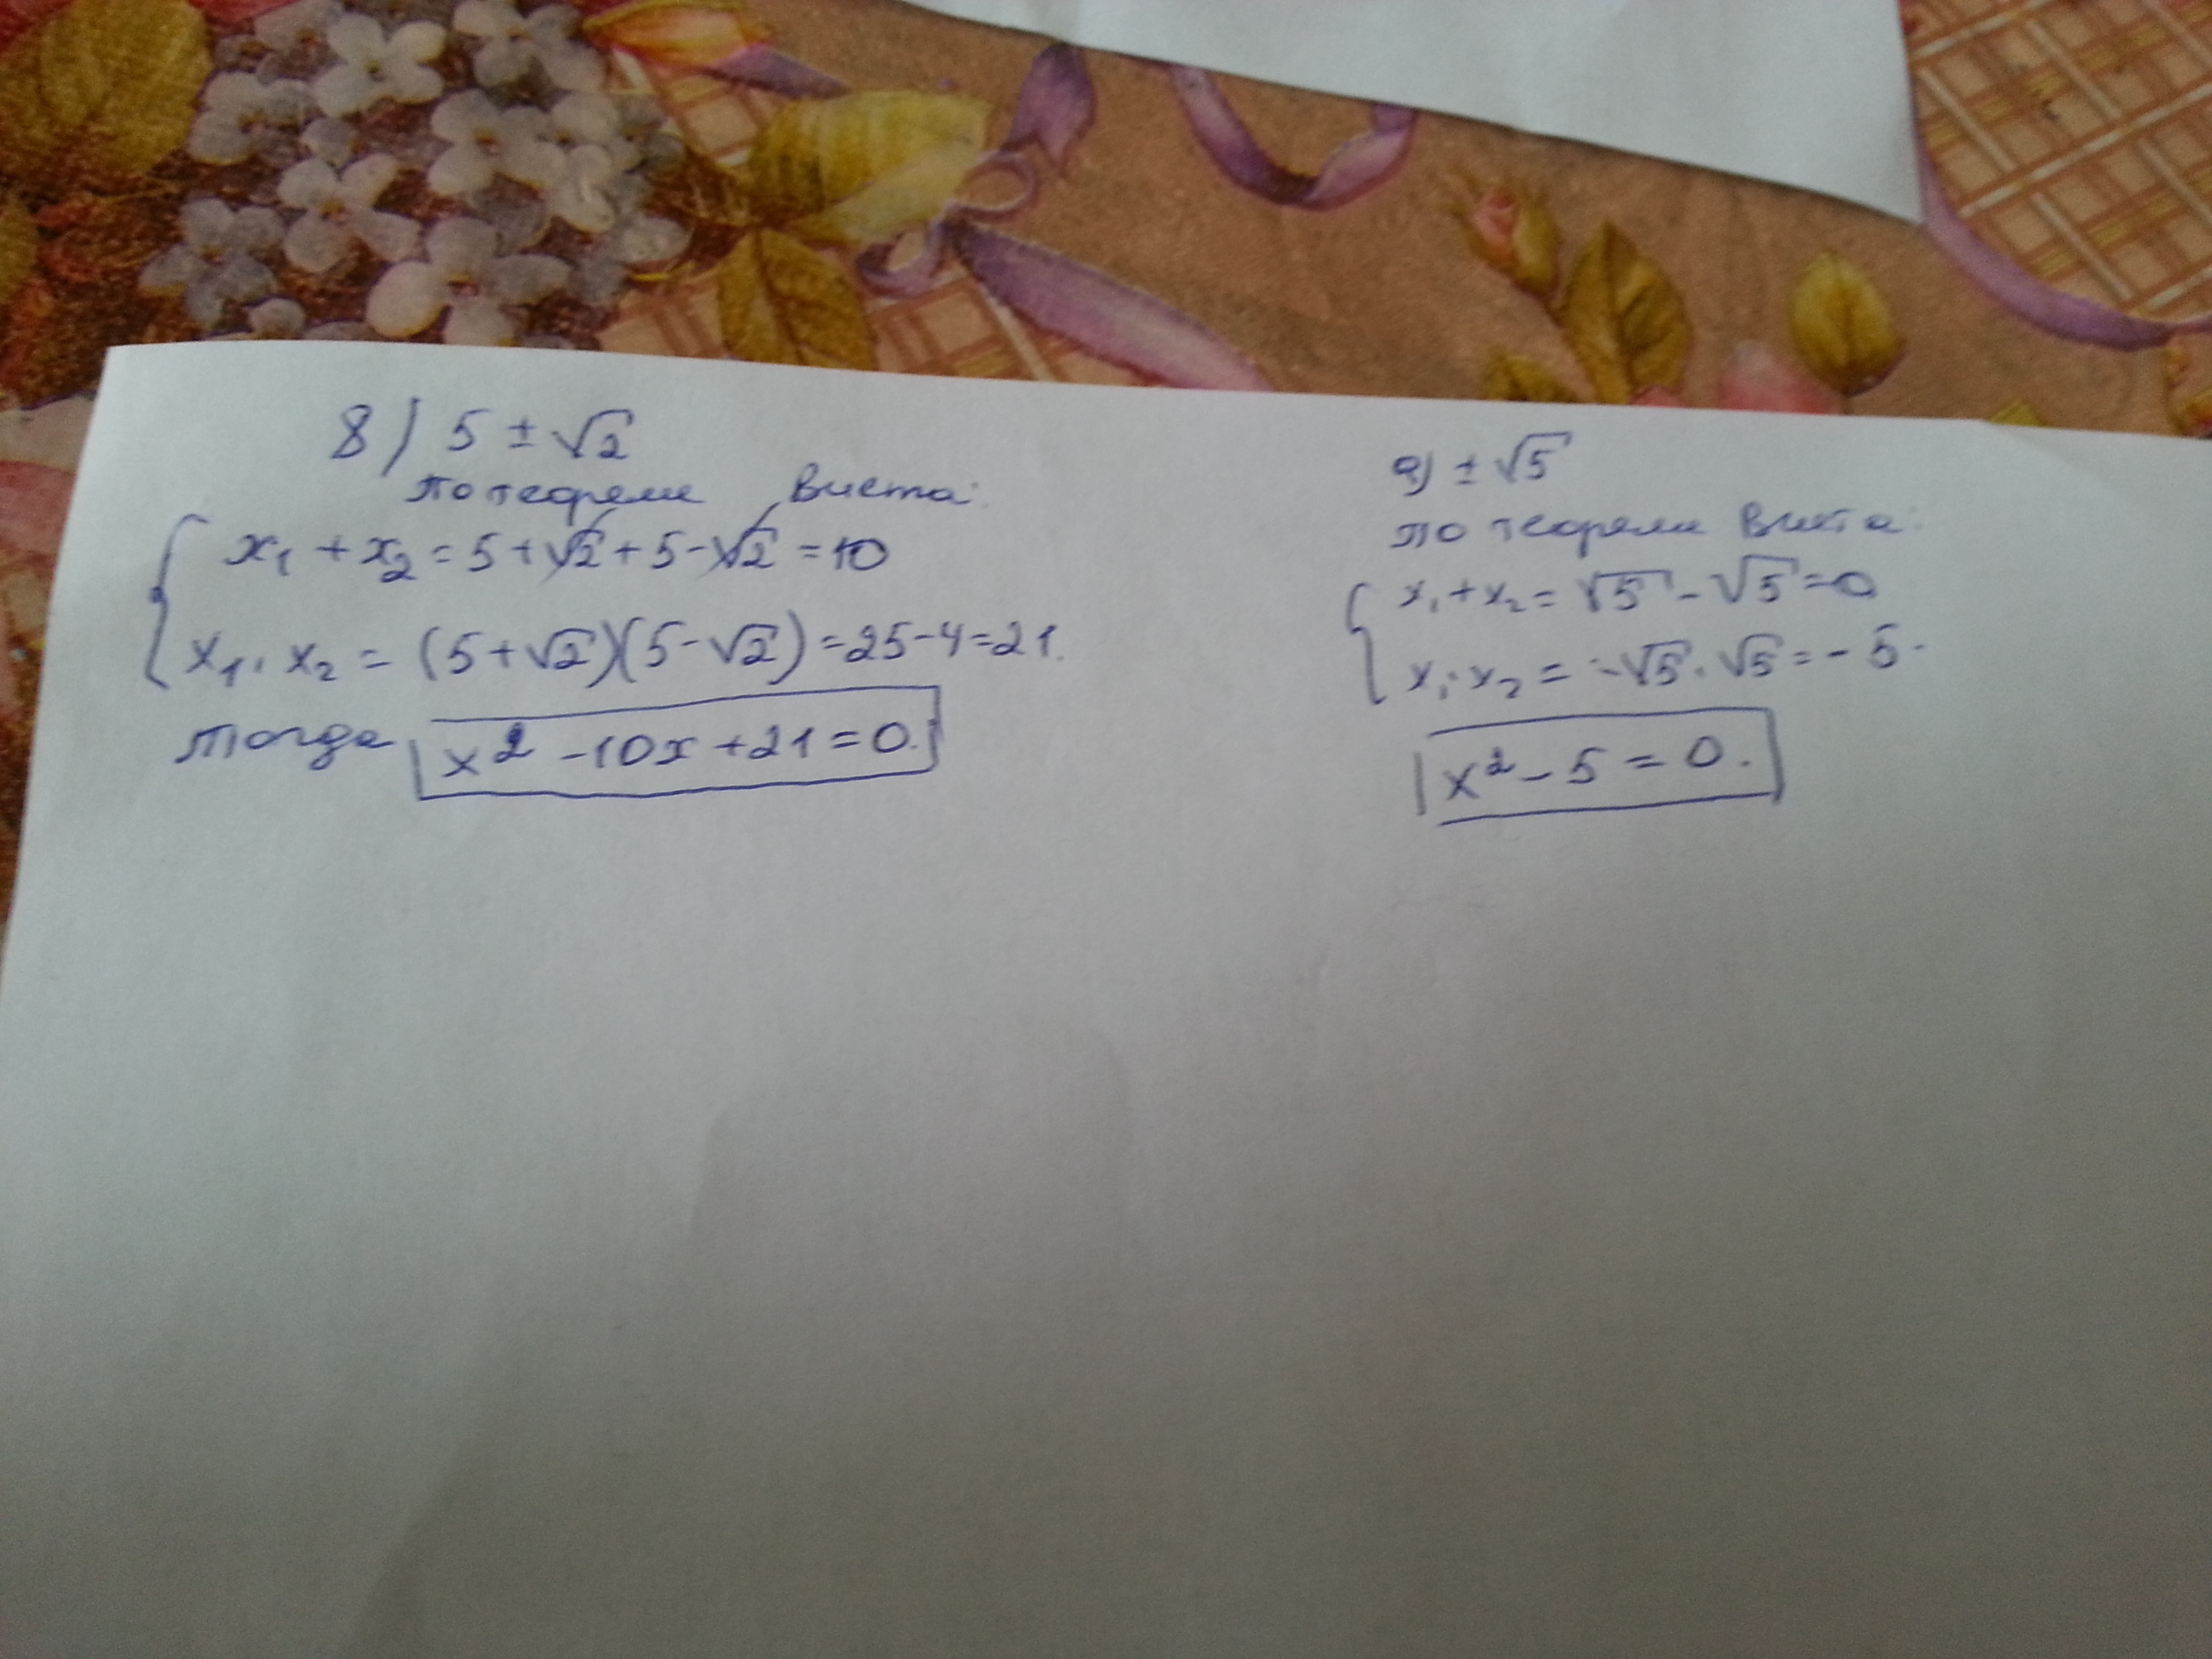 8) 5 ± √2
по теореме Виета:
x₁ + x₂ = 5 + √2 + 5 - √2 = 10
x₁ · x₂ = (5 + √2)(5 - √2) = 25 - 4 = 21.
тогда x² - 10x + 21 = 0.
9) ± √5
по теореме Виета:
x₁ + x₂ = √5 - √5 = 0
x₁ · x₂ = -√5 · √5 = -5.
x² - 5 = 0.